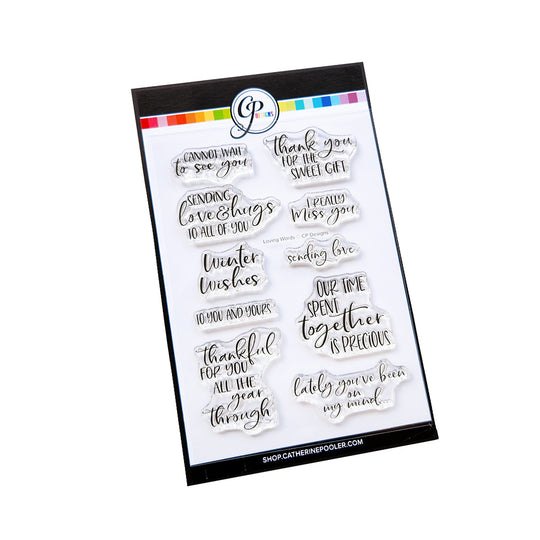 CP
DESIGNS
CANNOT WAIT
to see you
thank you
FOR THE
SWEET GIFT
SENDING
love & hugs
TO ALL OF YOU
I REALLY
Miss you
Loving Words - CP Designs
Winter
Wishes
sending love
TO YOU AND YOURS
OUR TIME
SPENT
together
IS PRECIOUS
thankful
FOR YOU
ALL THE
year
through
lately you've been
on
my mind...
SHOP.CATHERINEPOOLER.COM